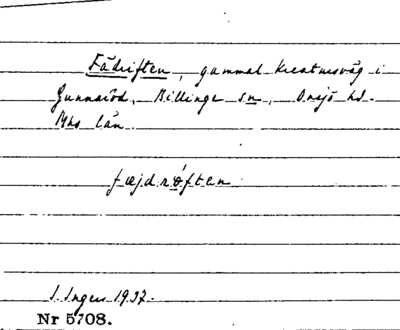 Fädriften, gammal kreatursväg i
Gunnaröd, Billinge sn, Onsjö hd.
Mhs län
fæjdrǿften
I. Ingers 1937.
Nr 5708.